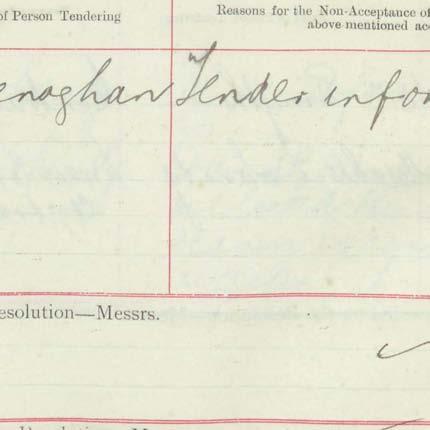 of Person Tendering
Reasons for the Non-Acceptance of
above mentioned
enaghan Tender infor
esolution—Messrs.